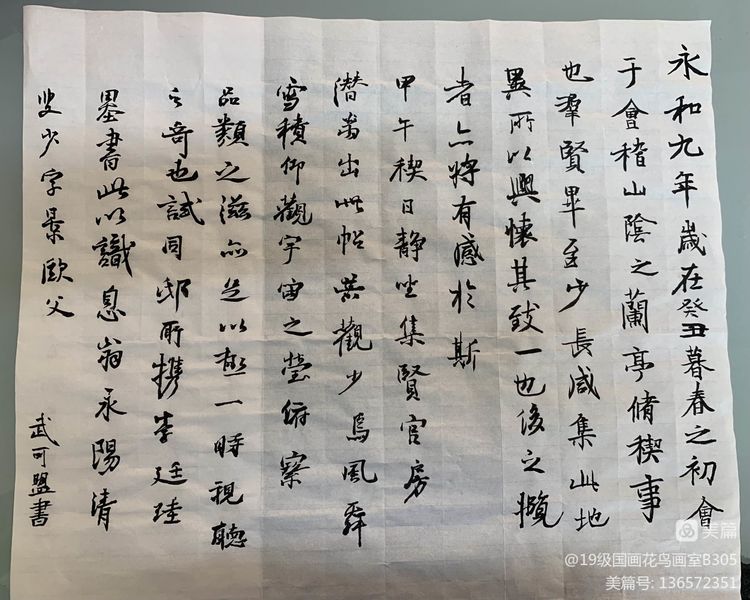 永和九年歲在癸丑暮春之初會
于會稽山陰之蘭亭脩稧事
也羣賢畢至少長咸集此地
異所以興懷其致一也後之攬
者亦將有感於斯
甲午稧日静坐集賢官房
潛出此帖共觀少焉風舞
雪積仰觀宇宙之瑩俯察
品類之滋亦足以極一時視聽
之奇也試同邸所携李廷珪
墨書此以識息翁永陽清
叟少字景歐父
武可盟書
美篇
@19级国画花鸟画室B305
美篇号: 136572351